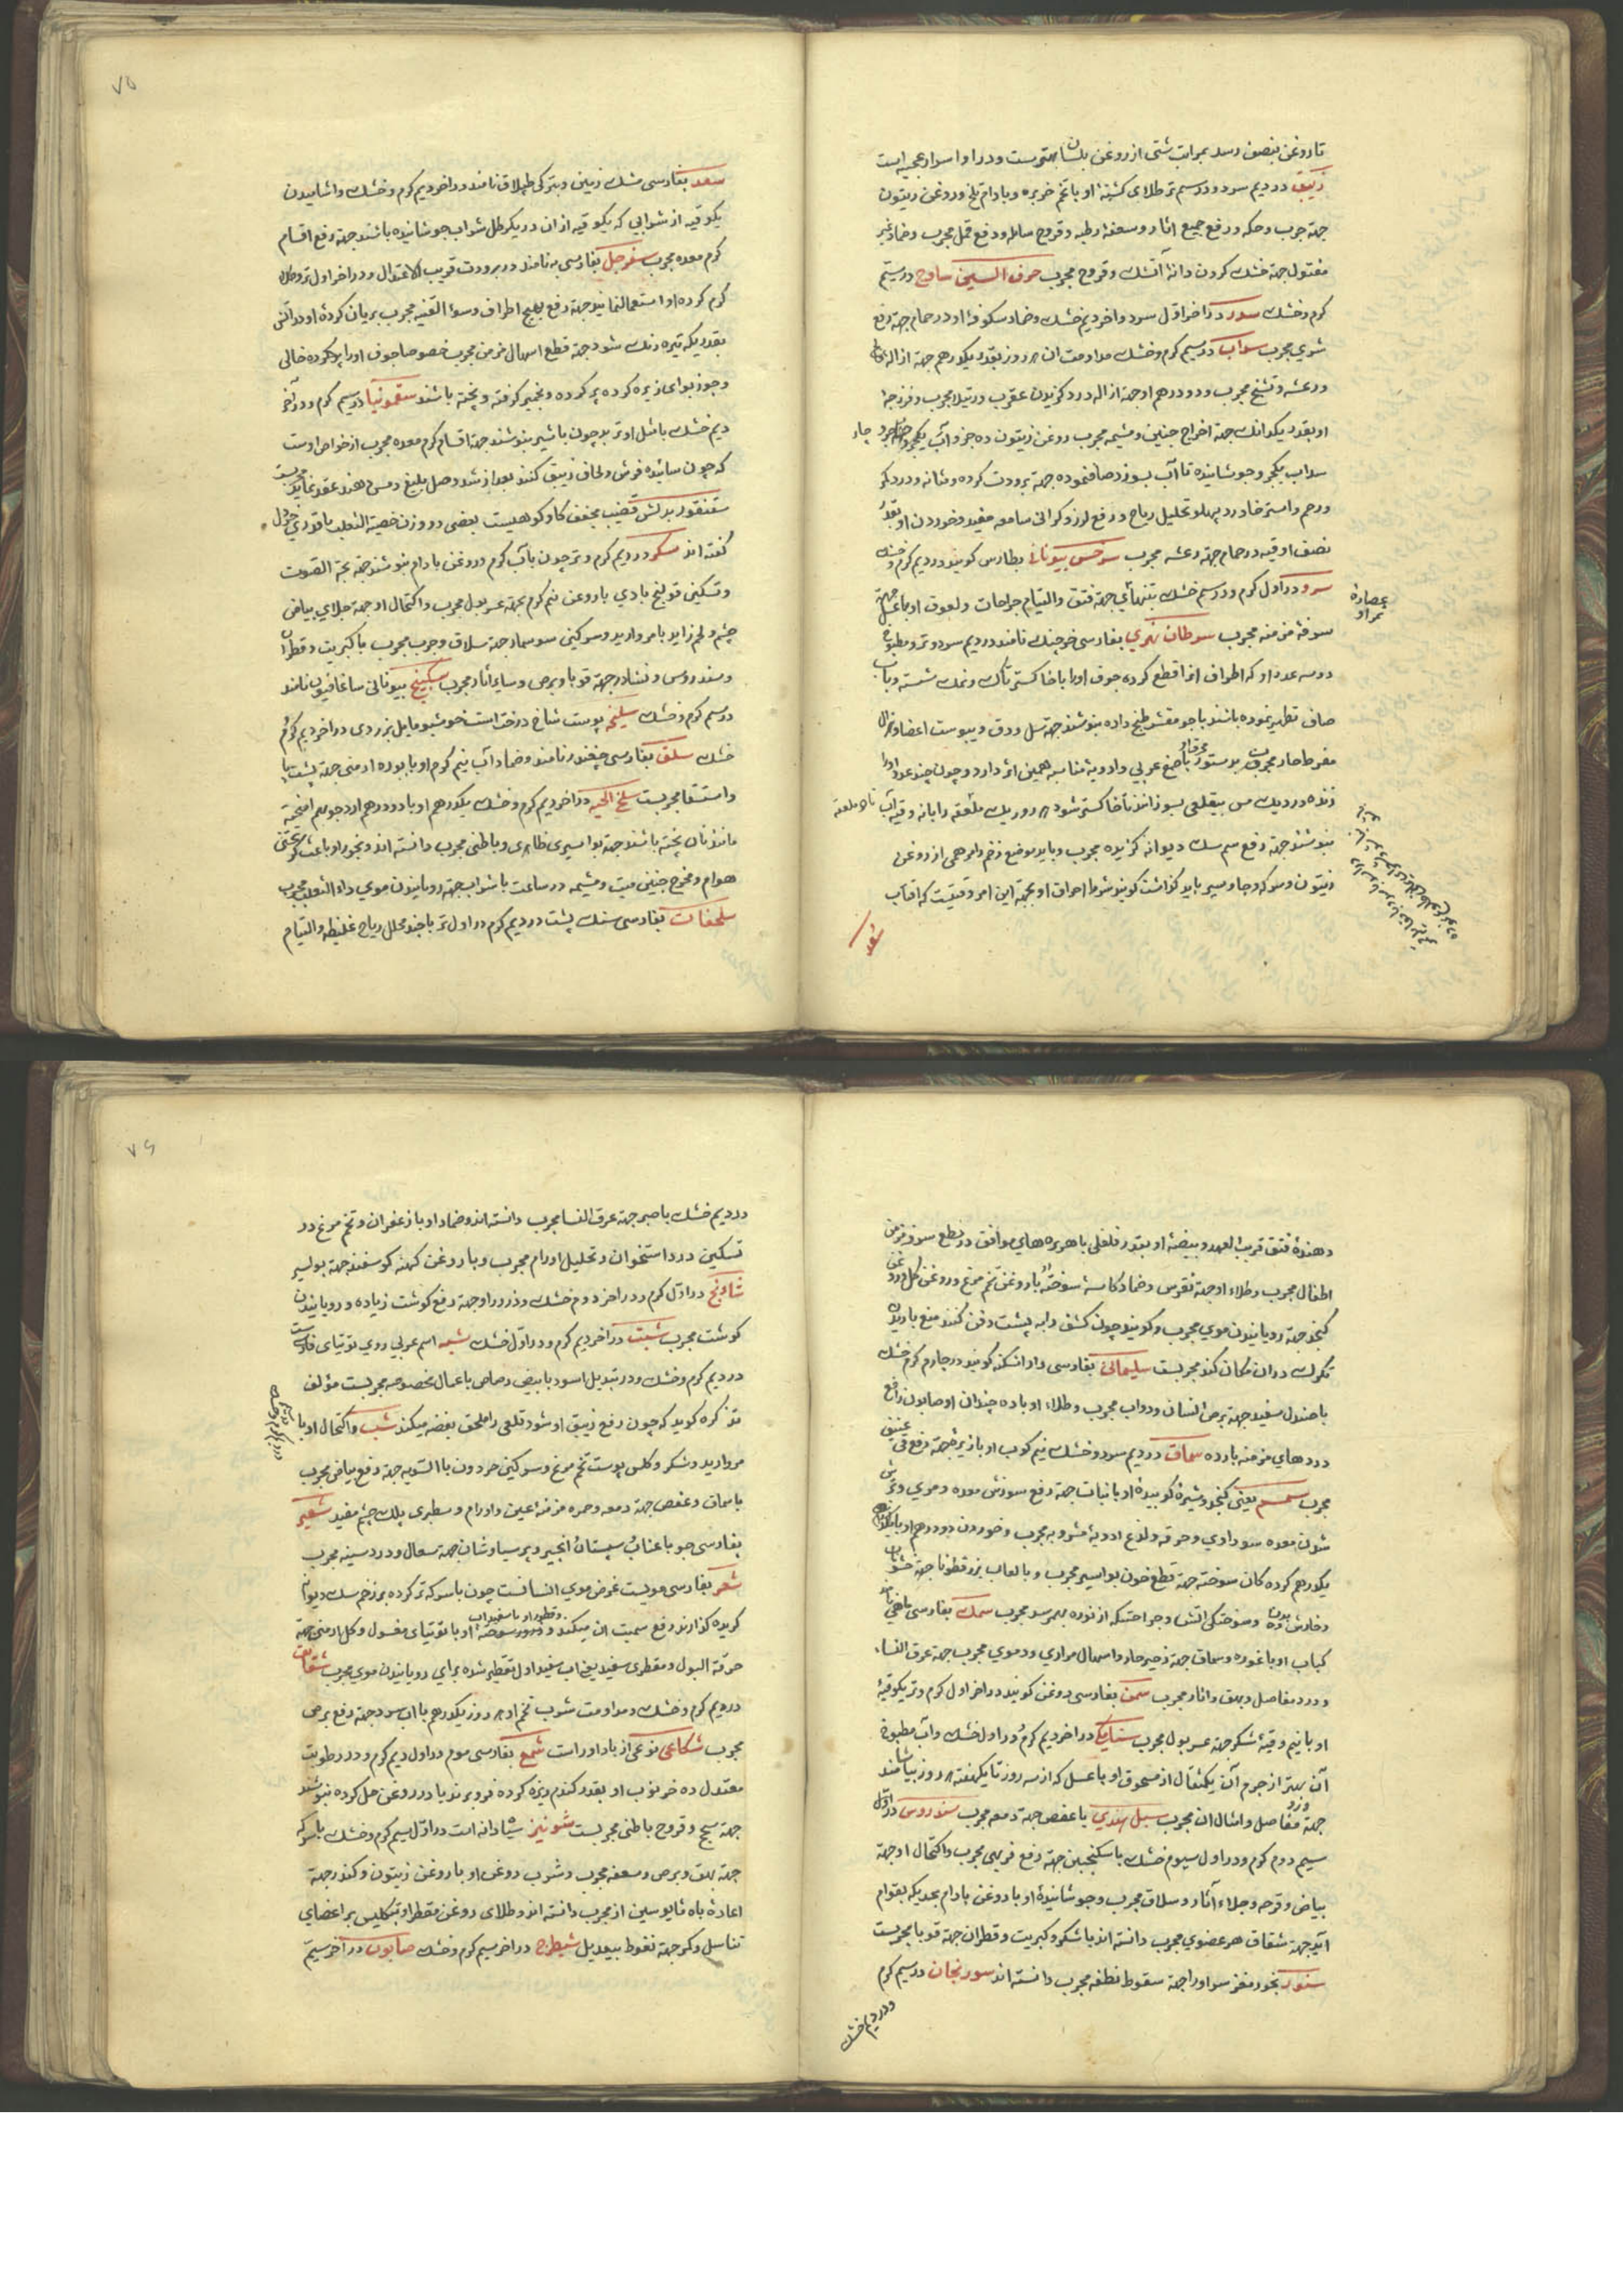 تا روغن بنصف رسد بمراتب شتی از روغن بلسان بهتر است و در او اسرار عجیبه است
زیبق در دیم سرد و در سیم تر طلای کشتهٔ او با تخم خربزه و بادام تلخ و روغن زیتون
جهة جرب و حکه و رفع جمیع آثار و سعفهٔ رطبه و قروح ساعیه و دفع قمل مجرب و ضماد غیر
مقتول جهة خشک کردن دانهٔ آتشک و قروح مجرب حرف السین ساذج در سیم
گرم و خشک سدر در آخر اول سرد و آخر دیم خشک و ضماد شکوفهٔ او در حمام جهة رفع
شری مجرب سداب در سیم گرم و خشک مداومت آن ۸ روز بقدر یکدرهم جهة ازاله
و رعشه و تشنج مجرب و دو درهم او جهة ازاله درد گزیدن عقرب و رتیلا مجرب و فرزجهٔ
او بقدر یکدانک جهة اخراج جنین و مشیمه مجرب روغن زیتون ده جزو آب یکجزو
سداب یکجزو جوشانیده تا آب بسوزد صاف نموده جهة برودت گرده و مثانه و درد کمر
و رحم و استرخا و درد پهلو و تحلیل ریاح و رفع لرز و گرانی سامعه مفید و خوردن او بقدر
نصف اوقیه در حمام جهة رعشه مجرب سرخس بیونانی بطارس گویند در دیم گرم و خشک
سرو در اول گرم و در سیم خشک بتنهائی جهة فتق و التیام جراحات و لعوق او با عسل جهة
عصارهٔ
ثمر او
سرفهٔ مزمنه مجرب سرطان نهری بفارسی خرچنگ نامند در دیم سرد و تر و مطبوخ
دو سه عدد او که اطراف آنرا قطع کرده جوف او را با خاکستر تاک و نمک شسته و بآب
صاف تطهیر نموده باشند با جو مقشر طبخ داده بنوشند جهة سل و دق و یبوست اعضا و هزال
مفرط حار مجرب و بدستور با صمغ عربی و ادویهٔ مناسبه همین اثر دارد و چون چند عدد او را
زنده در دیک مس بیقلعی بسوزانند تا خاکستر شود ۸ روز یک ملعقه را با نه وقیه آب
بنوشند جهة رفع سم سگ دیوانه گزیده مجرب و باید موضع زخم را مرهمی از روغن
زیتون و سرکه و جاوشیر باید گذاشت گویند شرط احراق او بجهة این امر وقتیست که آفتاب
سعد
۷۵
سعد بفارسی مشک زمین و بترکی طپلاق نامند در آخر دیم گرم و خشک و آشامیدن
یکوقیه از شرابی که یکوقیه از آن در یکرطل شراب جوشانیده باشند جهة رفع اقسام
کرم معده مجرب سفرجل بفارسی به نامند در برودت قریب الاعتدال و در آخر اول تر و طلاء
گرم کرده او استعمال نمایند جهة رفع تهبج اطراف و سوء القنیه مجرب بریان کردهٔ او در آتش
بقدریکه تیره رنگ شود جهة قطع اسهال مزمن مجرب خصوصا جوف او را پاک کرده خالی
و جوزبوا و زیره کرده پر کرده و بخمیر گرفته و پخته باشند سقمونیا در سیم گرم و در آخر
دیم خشک با مثل او تربد چون با شیر بنوشند جهة اقسام کرم معده مجرب از خواص اوست
که چون سائیده فرش و لحاف زیبق کنند بعد از شد وصل بلیغ و مس دهند عقد نماید مجربست
سقنقور بدلش قضیب مجفف گاو کوهیست بعضی دو وزن خصیة الثعلب با قدری خردل
گفته اند سکر در دیم گرم و تر چون با آب گرم و روغن بادام بنوشند جهة بحة الصوت
و تسکین قولنج بادی با روغن نیم گرم بجهة عسر بول مجرب و اکتحال او جهة جلای بیاض
چشم و لحم زاید با مروارید و سرگین سوسمار جهة سلاق و جرب مجرب با کبریت و قطران
و سندروس و نشادر جهة قوبا و برص و سایر آثار مجرب سکبینج بیونانی ساغافیون نامند
در سیم گرم و خشک سلیخه پوست شاخ درختست خوشبو مایل بزردی در آخر دیم گرم و
خشک سلق بفارسی چغندر نامند و ضماد آب نیم گرم او با بوره ارمنی جهة
و استسقا مجربست سلخ الحیه در آخر دیم گرم و خشک یکدرهم او با دو درهم آرد جو بهم آمیخته
مانند نان پخته باشند جهة بواسیر ظاهری و باطنی مجرب دانسته اند و بخور او باعث گریختن
هوام و مخرج جنین میت و مشیمه در ساعت با شراب جهة رویانیدن موی داء الثعلب مجرب
سلحفات بفارسی سنگ پشت در دیم گرم در اول تر با جند محلل ریاح غلیظه و التیام
دهندهٔ فتق قریب العهد و بیضهٔ او بقدر فلفلی با هریره های موافق در قطع سرفهٔ مزمن
اطفال مجرب و طلاء او جهة نقرس و ضماد کاسهٔ سوختهٔ او با روغن تخم مرغ و روغن گل و روغن
کنجد جهة رویانیدن موی مجرب و گویند چون کشف را به پشت دفن کنند منع باریدن
تگرگ در آن مکان کند مجربست سلیمانی بفارسی داراشکنه گویند در چهارم گرم خشک
با صندل سفید جهة برص انسان و دواب مجرب و طلاء او با ده چندان او صابون رافع
دردهای مزمنه بارده سماق در دیم سرد و خشک نیم کوب او با زیره جهة رفع قی عنیف
مجرب سمسم یعنی کنجد و شیرهٔ کوبیدهٔ او با نبات جهة رفع سوزش معده و مری و ترش
شدن معده سوداوی و حرقه و لذع ادویهٔ مشروبه مجرب و خوردن دو درهم او با
یکدرهم گرده کان سوخته جهة قطع خون بواسیر مجرب و با لعاب بزرقطونا جهة خشونت
و خارش بدن و سوختگی آتش و جراحتیکه از نوره بهم رسد مجرب سمک بفارسی ماهی نامند
کباب او با غوره و سماق جهة زحیر حار و اسهال مراری و دموی مجرب جهة عرق النساء
و درد مفاصل و بهق و آثار مجرب سمن بفارسی روغن گویند در آخر اول گرم و تر یکوقیهٔ
او با نیم وقیهٔ شکر جهة عسر بول مجرب سنا مکی در آخر دیم گرم و در اول خشک و آب مطبوخ
آن بهتر از جرم آن یکمثقال از مسحوق او با عسل که از سه روز تا یکهفته ۸ روز بیاشامند
جهة درد مفاصل و امثال آن مجرب سنبل هندی با عفص جهة دمعه مجرب سندروس در اول
سیم دوم گرم و در اول سیوم خشک با سکنجبین جهة رفع فربهی مجرب و اکتحال او جهة
بیاض و قرحه و جلاء آثار و سلاق مجرب و جوشانیدهٔ او با روغن بادام بحدیکه بقوام
آید جهة شقاق هر عضوی مجرب دانسته اند با شکر و کبریت و قطران جهة قوبا مجربست
سنور بخور مغز سر او را جهة سقوط نطفه مجرب دانسته اند سورنجان در سیم گرم
و در دیم خشک
۷۶
در دیم خشک با صبر جهة عرق النسا مجرب دانسته اند و ضماد او با زعفران و تخم مرغ در
تسکین درد استخوان و تحلیل اورام مجرب و با روغن کهنه گوسفند جهة بواسیر
شادنج در اول گرم و در آخر دوم خشک و ذرور او جهة رفع گوشت زیاده و رویانیدن
گوشت مجرب شبت در آخر دیم گرم و در اول خشک شبه اسم عربی روی توتیای
در دیم گرم و خشک و در تبدیل اسود بابیض رصاص باعمال مخصوصه مجربست مؤلف
تذکره گوید که چون رفع زیبق او شود قلعی را ملحق بفضه میکند شب و اکتحال او با
مروارید و شکر و کلس پوست تخم مرغ و سرگین حردون بالسویه جهة رفع بیاض مجرب
با سماق و عفص جهة دمعه و حمره مزمنه عین و اورام و سطبری پلک چشم مفید شعیر
بفارسی جو با عناب و سپستان و انجیر و پرسیاوشان جهة سعال و درد سینه مجرب
شعر بفارسی مویست غرض موی انسانست چون با سرکه تر کرده بر زخم سگ دیوانه
گزیده گذارند رفع سمیت آن میکند و ذرور سوختهٔ او با توتیای مغسول و گل ارمنی جهة
حرقة البول و مقطری سفید یعنی آب سفید اول تقطیر شده برای رویانیدن موی مجرب شقایق
در دیم گرم و خشک و مداومت شرب تخم او ۸ روز یکدرهم با آب سرد جهة رفع برص
مجرب شکاعی نوعی از باداورد است شمع بفارسی موم در اول دیم گرم و در رطوبت
معتدل ده خرنوب او بقدر گندم ریزه کرده فرو برند یا در روغن حل کرده بنوشند
جهة سحج و قروح باطنی مجربست شونیز سیاه دانه است در اول سیم گرم و خشک با سرکه
جهة بهق و برص و سعفه مجرب و شرب روغن او با روغن زیتون و کندر جهة
اعادهٔ باه مایوسین از مجرب دانسته اند و طلای روغن مقطر او بتکلیس بر اعضای
تناسل و کمر جهة نغوظ بیعدیل شیطرج در آخر سیم گرم و خشک صابون در آخر سیم